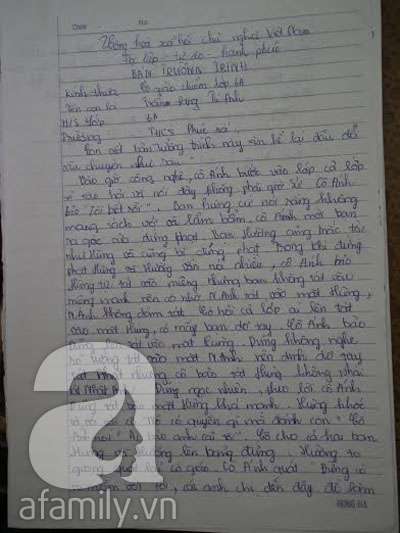 Cộng hoà xã hội chủ nghĩa Việt Nam
Độc lập - Tự do - Hạnh phúc
BẢN TƯỜNG TRÌNH
Kính thưa Cô giáo chủ nhiệm lớp 6A
Tên con là Anh
H/S lớp 6A
Trường THCS Phúc Xá
Con viết bản tường trình này xin kể lại đầu đuôi
câu chuyện như sau
Vào giờ công nghệ, cô Ánh bước vào lớp cả lớp
và nói đây không phải giờ Sử. Cô Ánh
bảo "Tôi biết rồi". Bạn Hưng cứ nói rằng không
mang sách vở và lẩm bẩm, cô Ánh mời bạn
ra góc cửa đứng phạt. Bạn Hưởng cũng mắc tội
như Hưng và cũng bị đứng phạt. Trong khi đứng
phạt Hưng và Hưởng vẫn nói nhiều, cô Ánh bảo
Hưng tự tát vào miệng nhưng bạn không tát vào
miệng mạnh nên cô nhờ N.Anh tát vào mặt Hưng,
N.Anh không dám tát. Cô hỏi cả lớp ai lên tát
vào mặt Hưng, có mấy bạn dơ tay. Cô Ánh bảo
Dũng lên tát vào mặt Hưng. Dũng không nghe
rõ tưởng tát vào mặt N.Anh nên định dơ tay
tát nhưng cô bảo tát Hưng không phải
Nhật Anh. Dũng ngạc nhiên, theo lời cô Ánh
Dũng tát vào mặt Hưng khá mạnh. Hưng khóc
và nói "Nó có quyền gì mà đánh con" Cô
Ánh nói cho cả hai bạn
Hưng và Hưởng lên bảng đứng. Hưởng to
giọng cô giáo. Cô Ánh quát Đừng có
với tôi, các anh chị đến đây để làm
HONG HA
a
afamily.vn